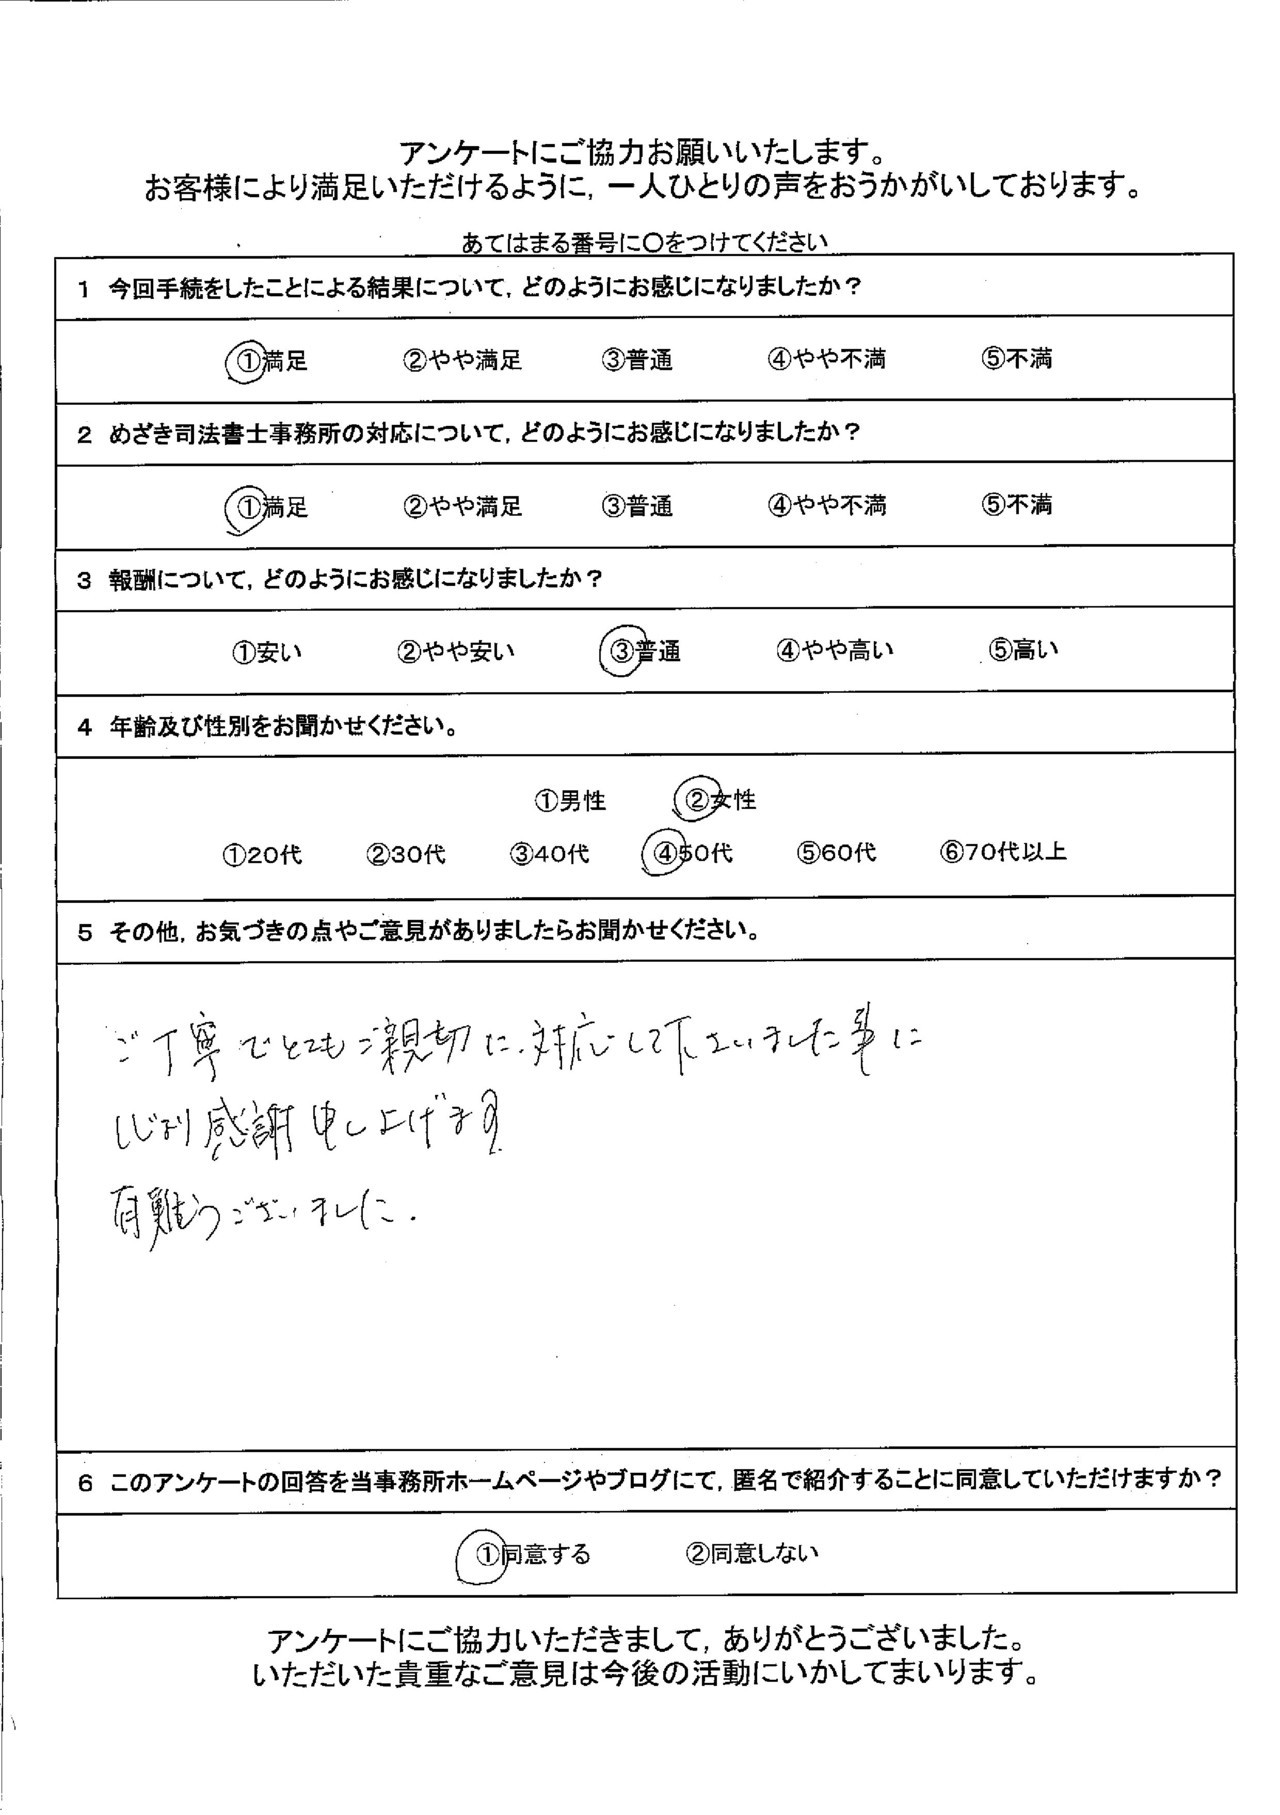 アンケートにご協力お願いいたします。
お客様により満足いただけるように，一人ひとりの声をおうかがいしております。
あてはまる番号に〇をつけてください
1 今回手続をしたことによる結果について，どのようにお感じになりましたか？
①満足 ②やや満足 ③普通 ④やや不満 ⑤不満
2 めざき司法書士事務所の対応について，どのようにお感じになりましたか？
①満足 ②やや満足 ③普通 ④やや不満 ⑤不満
3 報酬について，どのようにお感じになりましたか？
①安い ②やや安い ③普通 ④やや高い ⑤高い
4 年齢及び性別をお聞かせください。
①男性 ②女性
①20代 ②30代 ③40代 ④50代 ⑤60代 ⑥70代以上
5 その他，お気づきの点やご意見がありましたらお聞かせください。
ご丁寧でとてもご親切に対応して下さいました事に
心より感謝申し上げます
有難うございました．
6 このアンケートの回答を当事務所ホームページやブログにて，匿名で紹介することに同意していただけますか？
①同意する ②同意しない
アンケートにご協力いただきまして，ありがとうございました。
いただいた貴重なご意見は今後の活動にいかしてまいります。